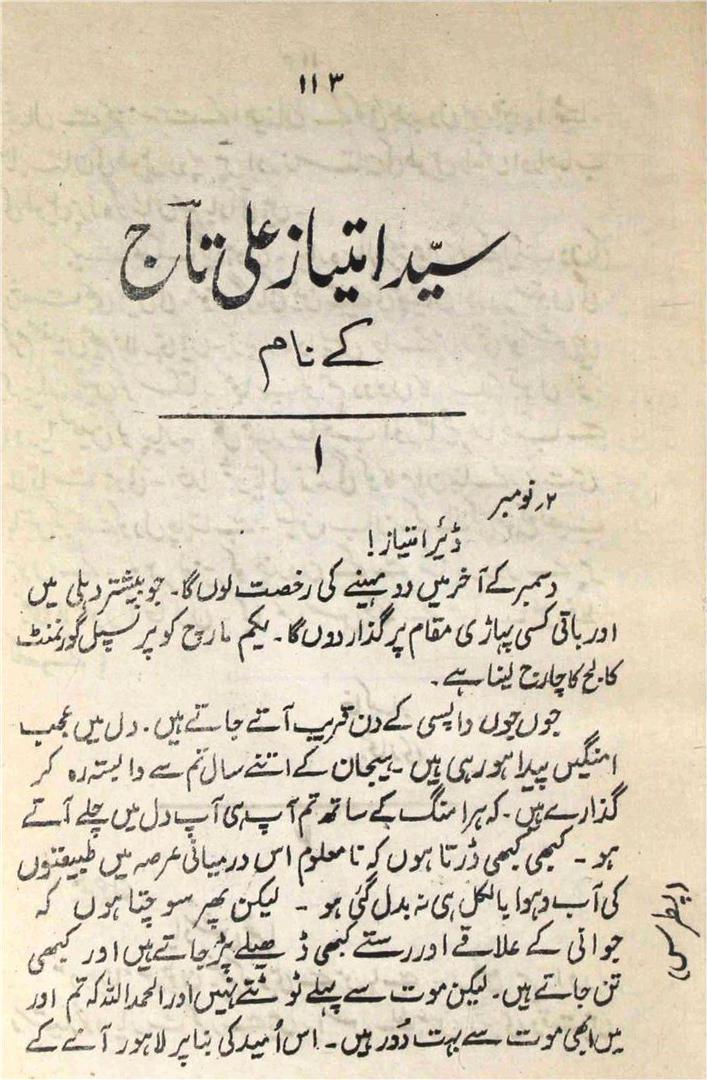 ۱۱۳
سیّد امتیاز علی تاؔج
کے نام
۱
۲ر نومبر
ڈیرٔ امتیاز!
دسمبر کے آخر میں دو مہینے کی رخصت لوں گا۔ جو بیشتر دہلی میں
اور باقی کسی پہاڑی مقام پر گذار دوں گا۔ یکم مارچ کو پرنسپل گورنمنٹ
کالج کا چارج لینا ہے۔
جوں جوں واپسی کے دن قریب آتے جاتے ہیں۔ دل میں عجب
امنگیں پیدا ہو رہی ہیں۔ ہیجان کے اتنے سال تم سے وابستہ رہ کر
گذارے ہیں۔ کہ ہر امنگ کے ساتھ تم آپ ہی آپ دل میں چلے آتے
ہو۔ کبھی کبھی ڈرتا ہوں کہ نامعلوم اس درمیانی عرصہ میں طبیعتوں
کی آب و ہوا بالکل ہی نہ بدل گئی ہو۔ لیکن پھر سوچتا ہوں کہ
جوانی کے علاقے اور رستے کبھی ڈھیلے پڑ جاتے ہیں اور کبھی
تن جاتے ہیں۔ لیکن موت سے پہلے ٹوٹتے نہیں اور الحمد اللہ کہ تم اور
میں ابھی موت سے بہت دُور ہیں۔ اس اُمید کی بنا پر لاہور آنے کے
(پطرس)